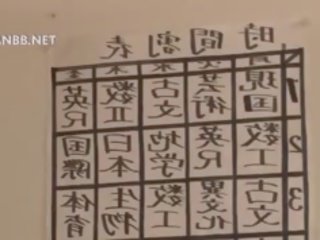 ANBB.NET
時間割表
月 火 水 木 金
1 現国 芸術 古文 数II 英R
2 数I 英R 地学 日本 国際
3 古文 異文化 数I 生物 体育